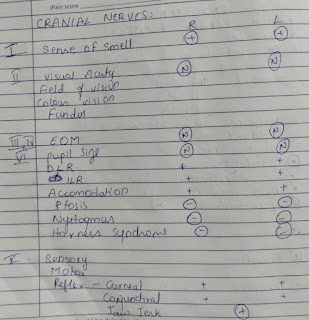 (Pain score
CRANIAL NERVES: R L
I Sense of smell + +
II Visual Acuity N N
Field of vision
Colour vision
Fundus
III, IV EOM N N
VI Pupil Size N N
DLR + +
ILR + +
Accomodation + +
Ptosis - -
Nystagmus - -
Horners Syndrome - -
V Sensory
Motor
Reflex - Corneal + +
Conjunctival + +
Jaw Jerk +